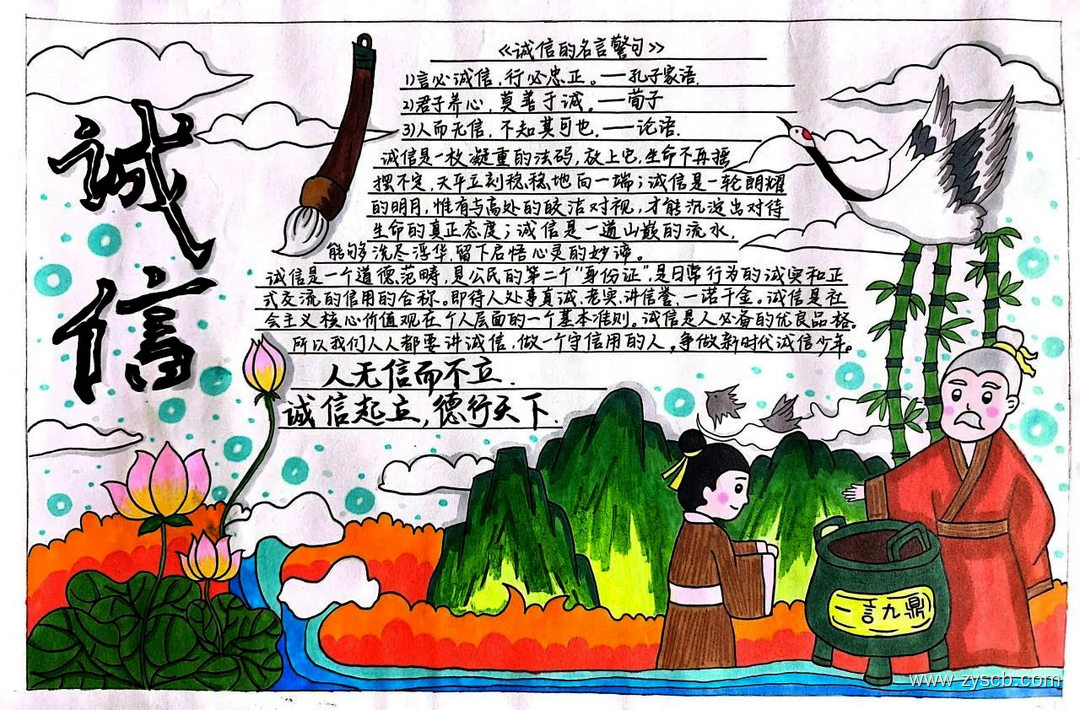 诚信
《诚信的名言警句》
1)言必诚信,行必忠正。——孔子家语.
2)君子养心,莫善于诚。——荀子
3)人而无信,不知其可也.——论语.
诚信是一枚凝重的法码,放上它,生命不再摇
摆不定,天平立刻稳稳地向一端;诚信是一轮朗耀
的明月,惟有与高处的皎洁对视,才能沉淀出对待
生命的真正态度;诚信是一道山巅的流水,
能够洗尽浮华,留下启悟心灵的妙谛。
诚信是一个道德范畴,是公民的第二个“身份证”,是日常行为的诚实和正
式交流的信用的合称。即待人处事真诚、老实、讲信誉,一诺千金。诚信是社
会主义核心价值观在个人层面的一个基本准则。诚信是人必备的优良品格。
所以我们人人都要讲诚信,做一个守信用的人。争做新时代诚信少年。
人无信而不立.
诚信起立,德行天下.
一言九鼎
www.zyscb.com